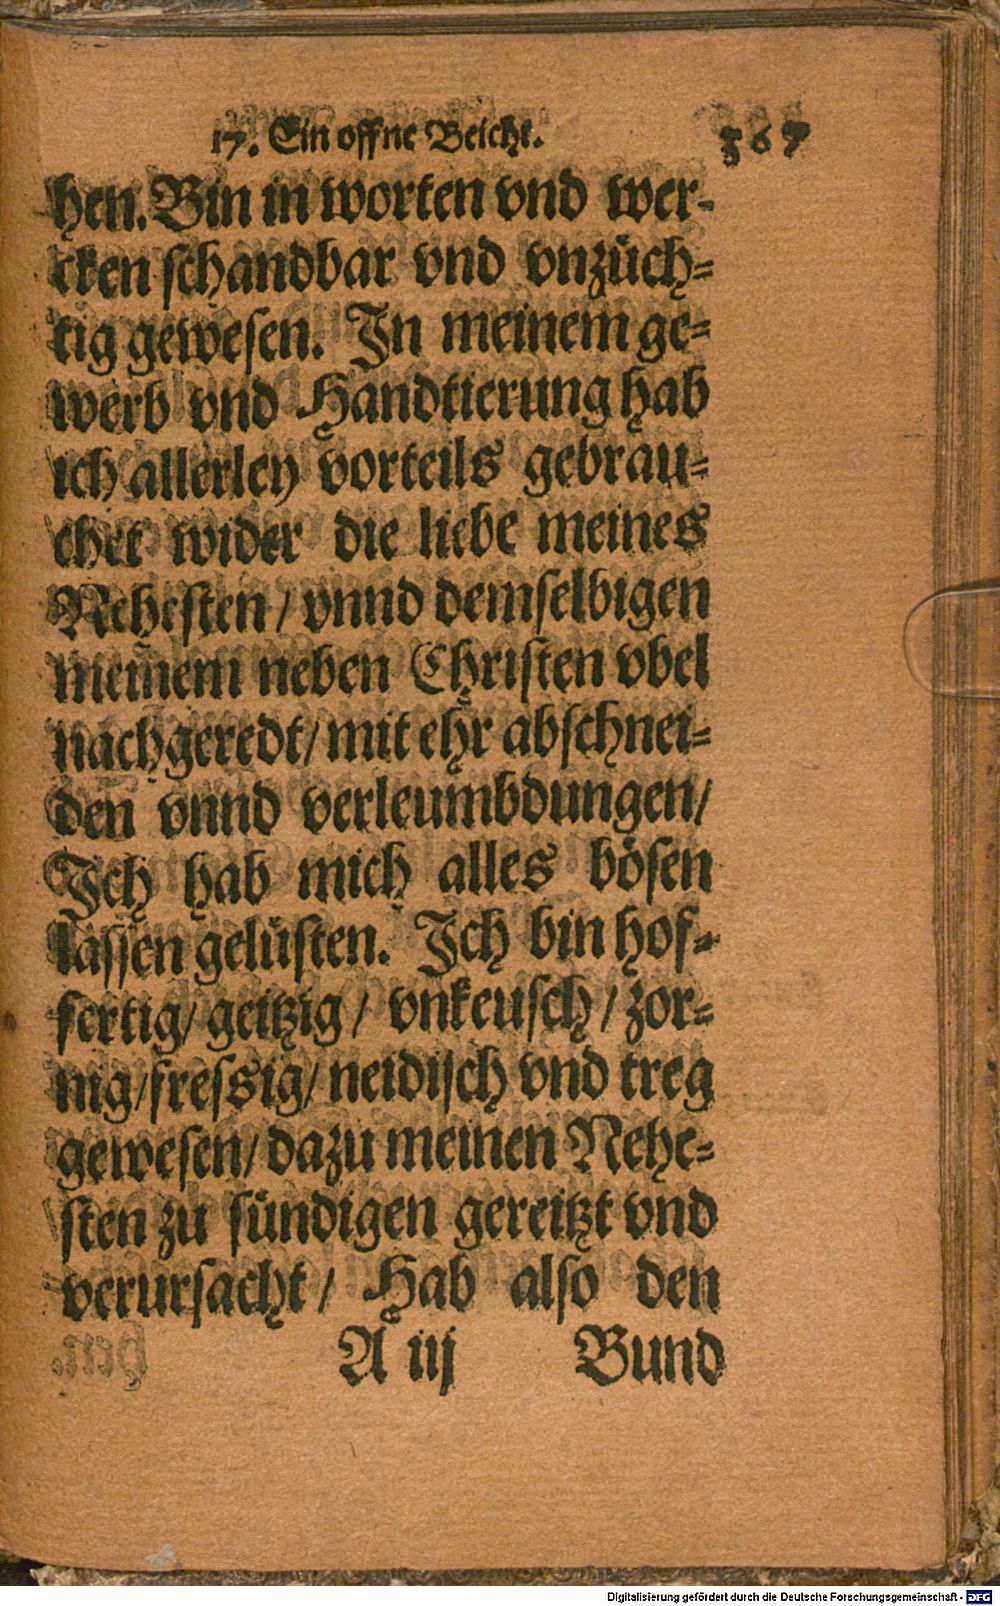 17. Ein offne Beicht. 367
hen. Bin in worten vnd wer-
cken schandbar vnd vnzüch-
tig gewesen. In meinem ge-
werb vnd Handtierung hab
ich allerley vorteils gebrau-
chet wider die liebe meines
Nehesten / vnnd demselbigen
meinem neben Christen vbel
nachgeredt / mit ehr abschnei-
den vnnd verleumbdungen /
Ich hab mich alles bösen
lassen gelüsten. Ich bin hof-
fertig / geitzig / vnkeusch / zor-
nig / fressig / neidisch vnd treg
gewesen / dazu meinen Nehe-
sten zu sündigen gereitzt vnd
verursacht / Hab also den
A iij Bund
Digitalisierung gefördert durch die Deutsche Forschungsgemeinschaft - DFG